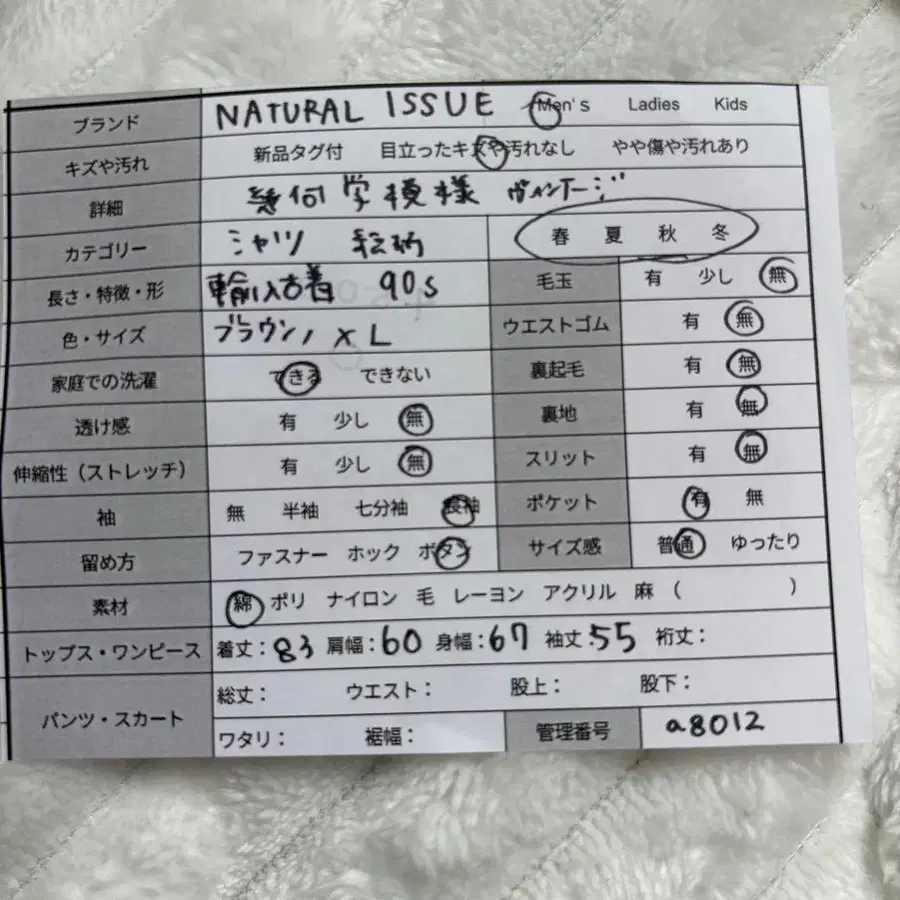 ブランド NATURAL ISSUE Men's Ladies Kids
キズや汚れ 新品タグ付 目立ったキズや汚れなし やや傷や汚れあり
詳細 幾何学模様 ヴィンテージ
カテゴリー シャツ 総柄 春 夏 秋 冬
長さ・特徴・形 輸入古着 90s 毛玉 有 少し 無
色・サイズ ブラウン, XL ウエストゴム 有 無
家庭での洗濯 できる できない 裏起毛 有 無
透け感 有 少し 無 裏地 有 無
伸縮性（ストレッチ） 有 少し 無 スリット 有 無
袖 無 半袖 七分袖 長袖 ポケット 有 無
留め方 ファスナー ホック ボタン サイズ感 普通 ゆったり
素材 綿 ポリ ナイロン 毛 レーヨン アクリル 麻 （ ）
トップス・ワンピース 着丈：83 肩幅：60 身幅：67 袖丈：55 裄丈：
パンツ・スカート 総丈： ウエスト： 股上： 股下：
ワタリ： 裾幅： 管理番号 a8012